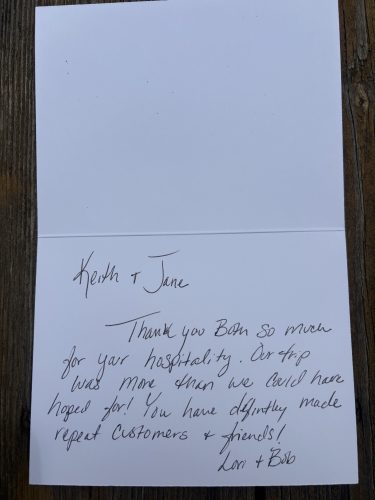 Keith + Jane
Thank you Both so much
for your hospitality. Our trip
was more than we could have
hoped for! You have defintley made
repeat customers + friends!
Lori + Bob